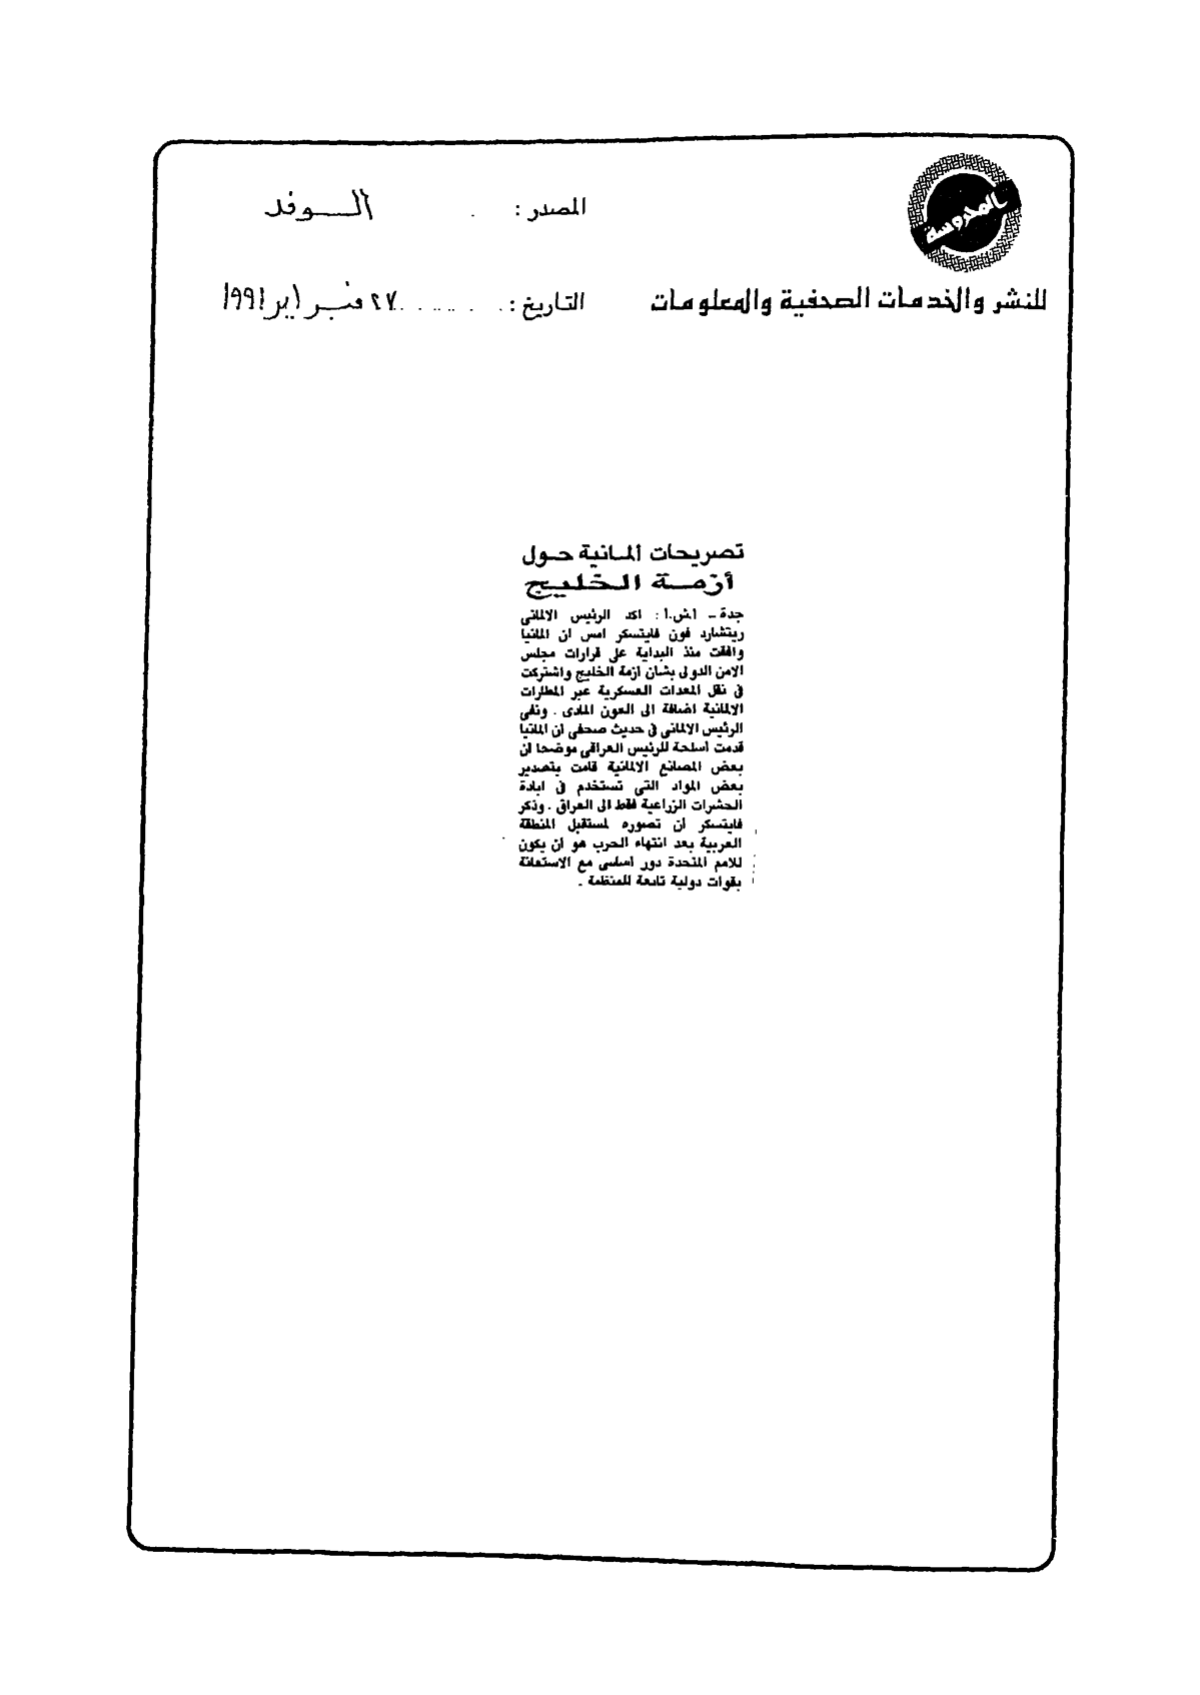 المحروسة
المصدر : الوفد
للنشر والخدمات الصحفية والمعلومات
التاريخ : ٢٧ فبراير ١٩٩١
تصريحات ألمانية حول
أزمة الخليج
جدة - أ.ش.ا : اكد الرئيس الالمانى
ريتشارد فون فايتسكر امس ان المانيا
وافقت منذ البداية على قرارات مجلس
الامن الدولى بشان ازمة الخليج واشتركت
فى نقل المعدات العسكرية عبر المطارات
الالمانية اضافة الى العون المادى . ونفى
الرئيس الالمانى فى حديث صحفى ان المانيا
قدمت اسلحة للرئيس العراقى موضحا ان
بعض المصانع الالمانية قامت بتصدير
بعض المواد التى تستخدم فى ابادة
الحشرات الزراعية فقط الى العراق . وذكر
فايتسكر ان تصوره لمستقبل المنطقة
العربية بعد انتهاء الحرب هو ان يكون
للامم المتحدة دور اساسى مع الاستعانة
بقوات دولية تابعة للمنظمة .